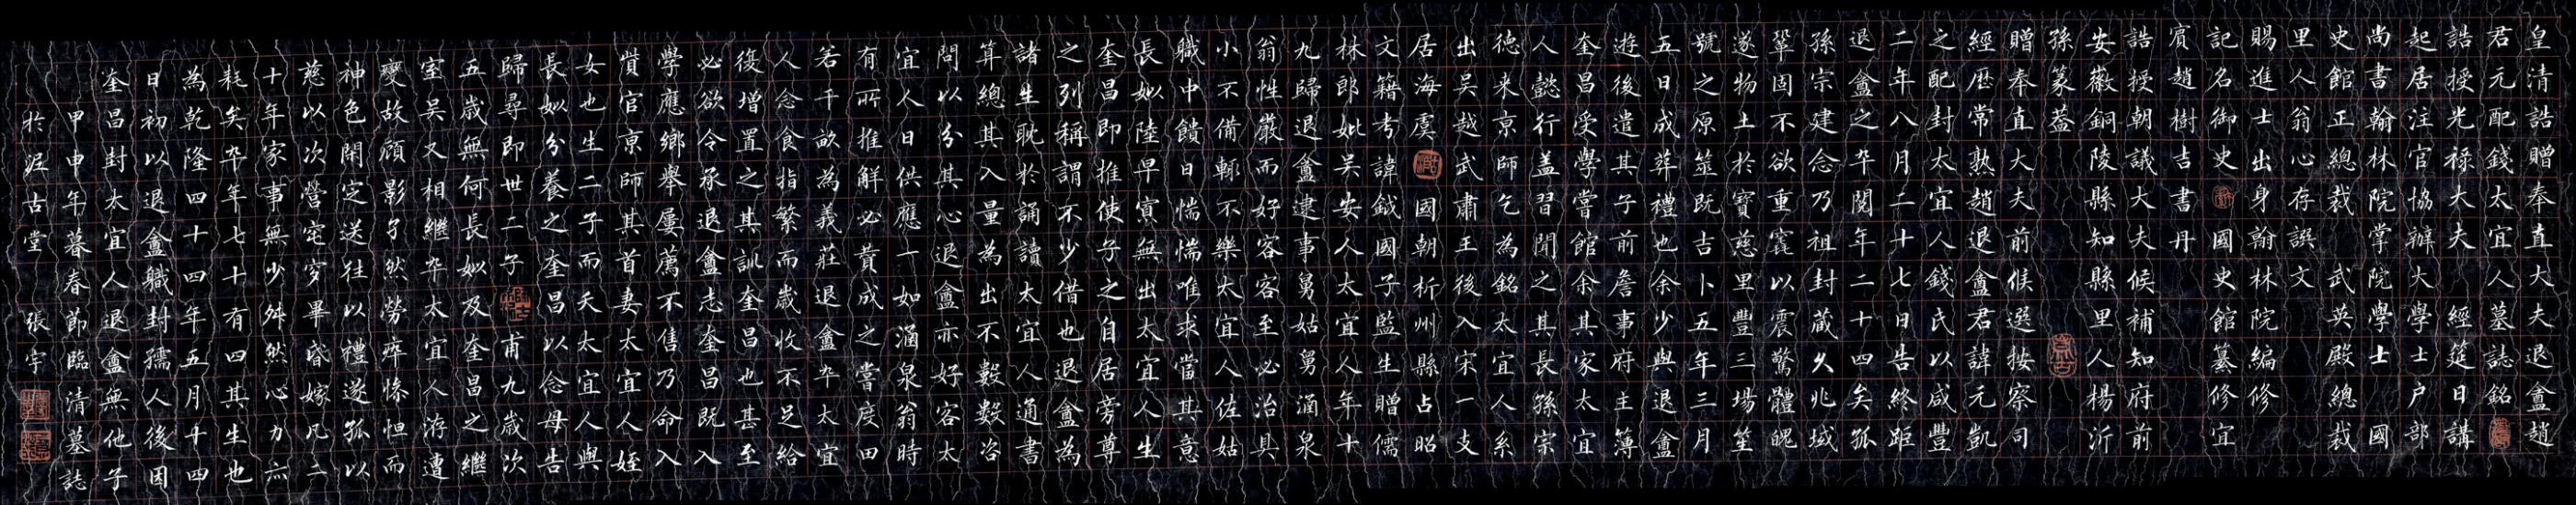 皇清誥贈奉直大夫退盦趙
君元配錢太宜人墓誌銘
誥授光祿大夫 經筵日講
起居注官協辦大學士戶部
尚書翰林院掌院學士 國
史館正總裁 武英殿總裁
里人翁心存譔文
賜進士出身翰林院編修
記名御史 國史館纂修宜
賓趙樹吉書丹
誥授朝議大夫候補知府前
安徽銅陵縣知縣里人楊沂
孫篆蓋
贈奉直大夫前候選按察司
經歷常熟趙退盦君諱元凱
之配封太宜人錢氏以咸豐
二年八月二十七日告終距
退盦之卒閱年二十四矣孤
孫宗建念乃祖封藏久兆域
鞏固不欲重窆以震驚體魄
遂物土於寶慈里豐三場笙
號之原筮既吉卜五年三月
五日成葬禮也余少與退盦
遊後遣其子前詹事府主簿
奎昌受學嘗館余其家太宜
人懿行盖習聞之其長孫宗
德來京師乞為銘太宜人系
出吳越武肅王後入宋一支
居海虞 國朝析州縣占昭
文籍考諱鉞國子監生贈儒
林郎妣吳安人太宜人年十
九歸退盦逮事舅姑舅涵泉
翁性嚴而好客客至必治具
小不備輒不樂太宜人佐姑
職中饋日惴惴唯求當其意
長姒陸早寡無出太宜人生
奎昌即推使子之自居旁尊
之列稱謂不少借也退盦為
諸生耽於誦讀太宜人通書
筭總其入量為出不數數咨
問以分其心退盦亦好客太
宜人日供應一如涵泉翁時
有所推解必賛成之嘗度田
若千畝為義莊退盦卒太宜
人念食指繁而歲收不足給
復增置之其訓奎昌也甚至
必欲令承退盦志奎昌既入
學應鄉舉屢薦不售乃命入
貲官京師其首妻太宜人姪
女也生二子而夭太宜人與
長姒分養之奎昌以念母告
歸尋即世二子 甫九歲次
五歲無何長姒及奎昌之繼
室吳又相繼卒太宜人洊遭
變故顧影孑然勞瘁愫怛而
神色閒定送往以禮遂孤以
慈以次營窀穸畢昏嫁凡二
十年家事無少舛然心力亦
耗矣卒年七十有四其生也
為乾隆四十四年五月十四
日初以退盦職封孺人後因
奎昌封太宜人退盦無他子
甲申年暮春節臨清墓誌
於淀古堂 張宇